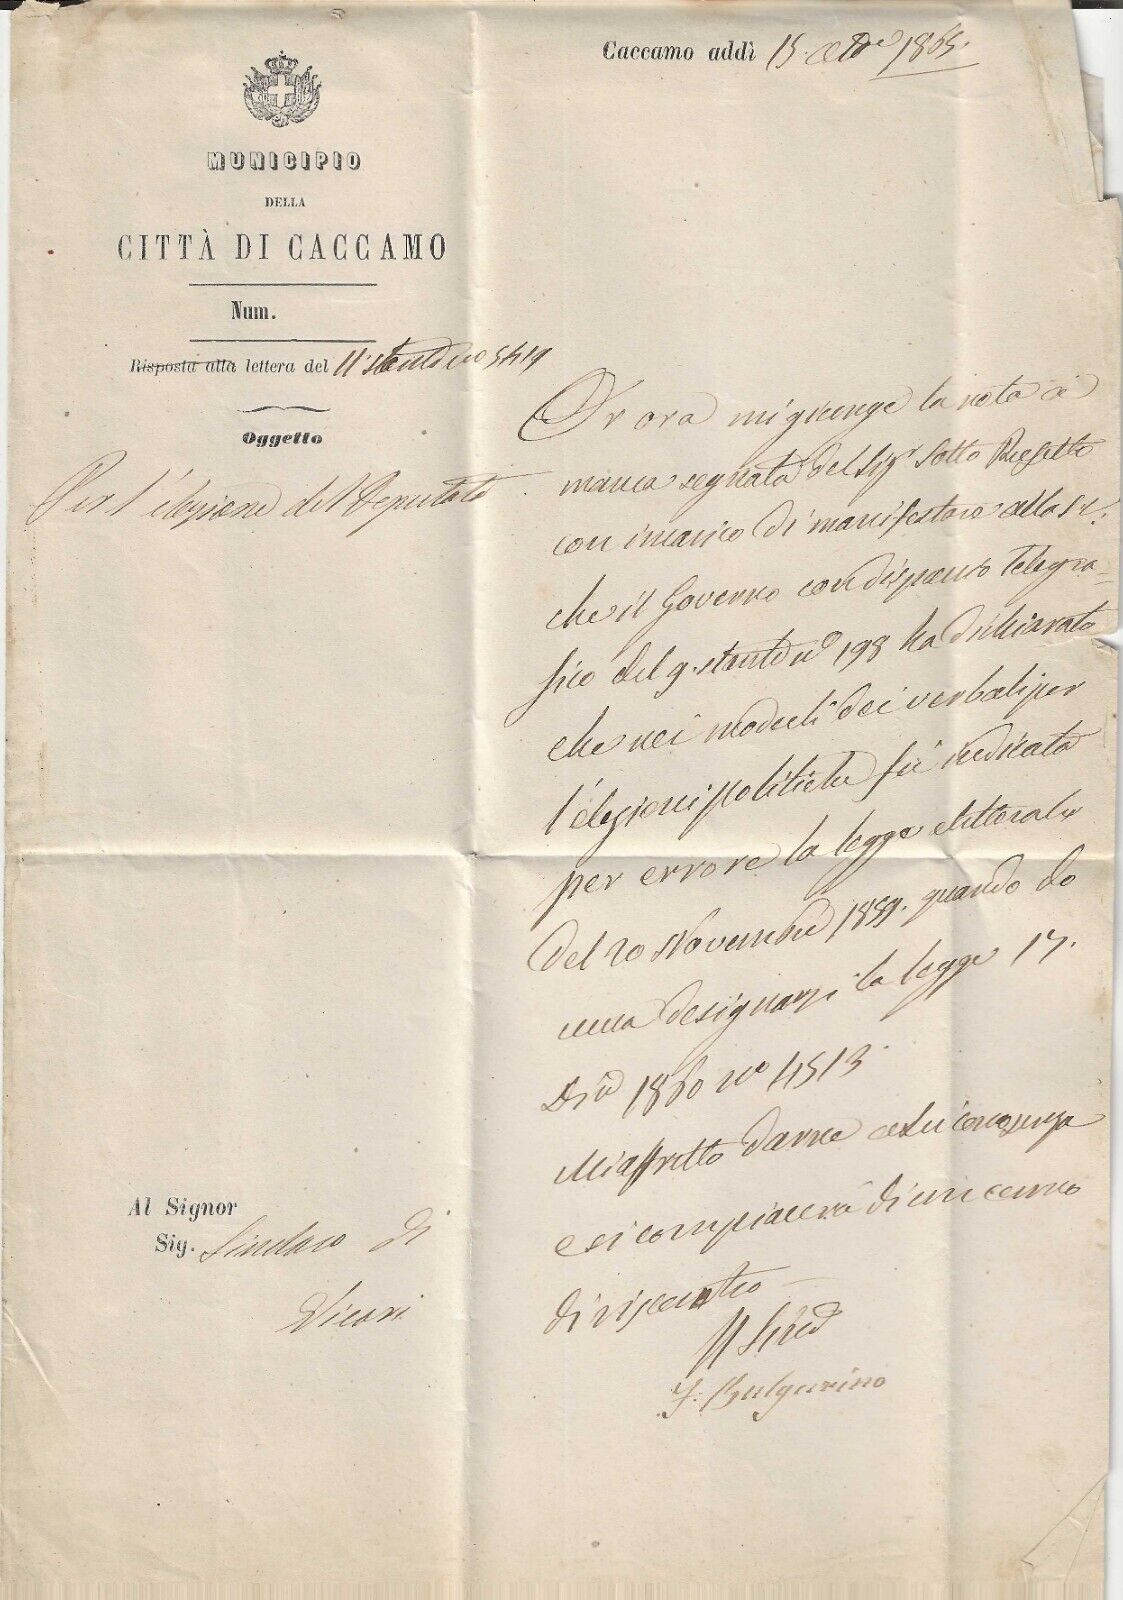 Caccamo addì 15. 8bre 1865.
MUNICIPIO
DELLA
CITTÀ DI CACCAMO
Num.
Risposta alla lettera del 11 stante no 5419
Oggetto
Per l'elezione del Deputato
Or ora mi giunge la nota a
manca segnata del Sigr Sotto Prefetto
con incarico di manifestare alla S.V.
che il Governo con dispaccio telegra-
fico del 9. stante no 198 ha dichiarato
che nei modelli dei verbali per
l'elezioni politiche fù indicata
per errore la legge elettorale
del 20 Novembre 1859. quando do
veva designarsi la legge 17.
Dic 1860 no 4513.
Mi affretto darne a Lei conoscenza
e si compiacerà di un cenno
di riscontro
Al Signor
Sig. Sindaco di
Vicari
Il Sind
F. Bulgarino